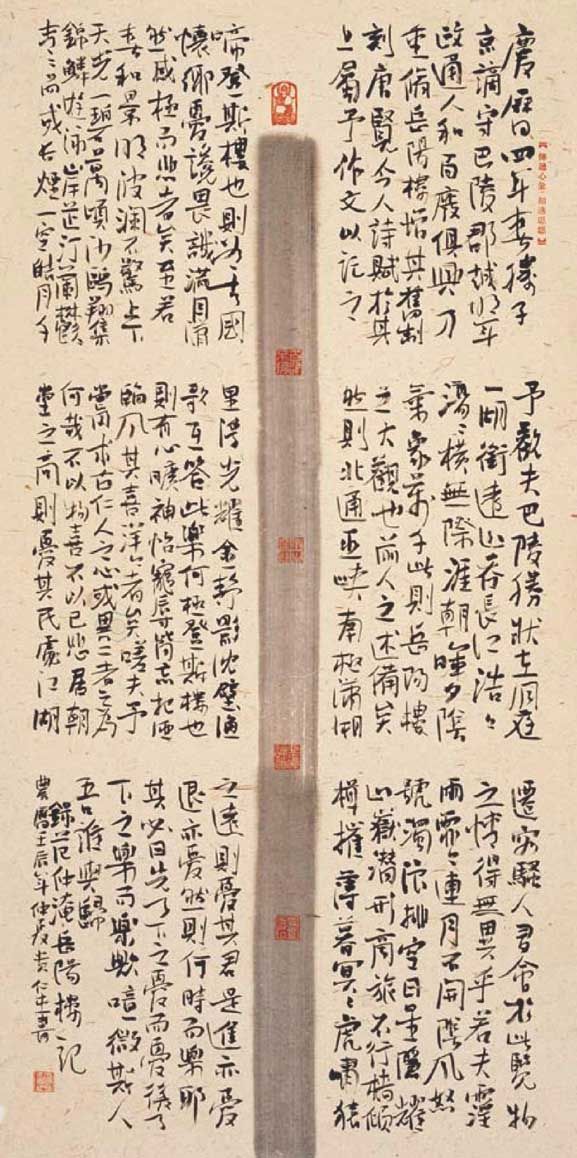 慶曆四年春滕子
京謫守巴陵郡越明年
政通人和百廢俱興乃
重脩岳陽樓增其舊制
刻唐賢今人詩賦於其
上屬予作文以記之
予觀夫巴陵勝狀在洞庭
一湖銜遠山吞長江浩々
湯々橫無際涯朝暉夕陰
氣象萬千此則岳陽樓
之大觀也前人之述備矣
然則北通巫峽南極瀟湘
遷客騷人多會於此覽物
之情得無異乎若夫霪
雨霏々連月不開陰風怒
號濁浪排空日星隱耀
山嶽潛形商旅不行檣傾
楫摧薄暮冥々虎嘯猿
啼登斯樓也則有去國
懷鄉憂讒畏譏滿目蕭
然感極而悲者矣至若
春和景明波瀾不驚上下
天光一碧萬頃沙鷗翔集
錦鱗游泳岸芷汀蘭鬱々
青々而或長煙一空皓月千
里浮光耀金靜影沈璧漁
歌互答此樂何極登斯樓也
則有心曠神怡寵辱皆忘把酒
臨風其喜洋々者矣嗟夫予
嘗求古仁人之心或異二者之為
何哉不以物喜不以己悲居朝
堂之高則憂其民處江湖
之遠則憂其君是進亦憂
退亦憂然則何時而樂耶
其必曰先天下之憂而憂後天
下之樂而樂歟噫微斯人
吾誰與歸
錄范仲淹岳陽樓記
農曆壬辰年仲夏黃仁